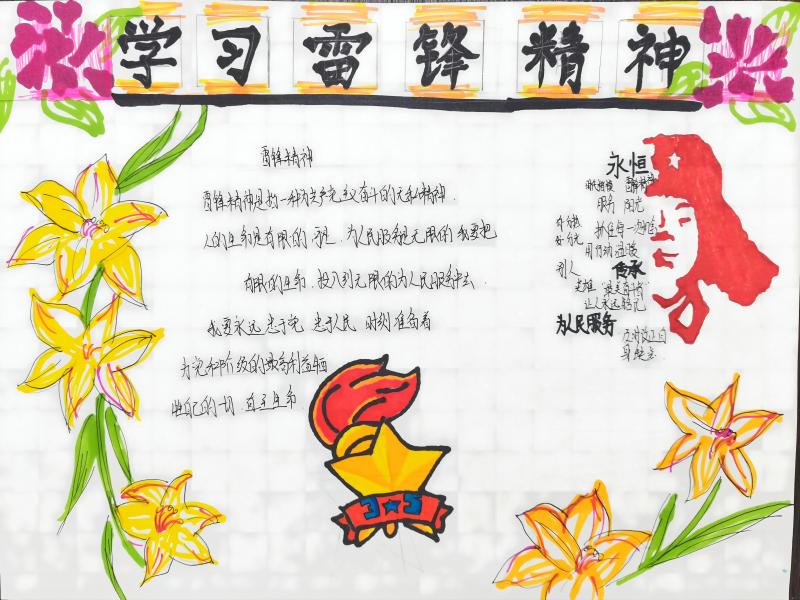 学习雷锋精神
雷锋精神
雷锋精神是指一种为共产主义奋斗的无私精神
人的生命是有限的 可是 为人民服务是无限的 我要把
有限的生命 投入到无限的为人民服务中去
我要永远忠于党 忠于人民 时刻准备着
为党和阶级的最高利益牺
牲自己的一切 直至生命
永恒
服务 阳光
用行动温暖
别人 传承
为人民服务
3★5